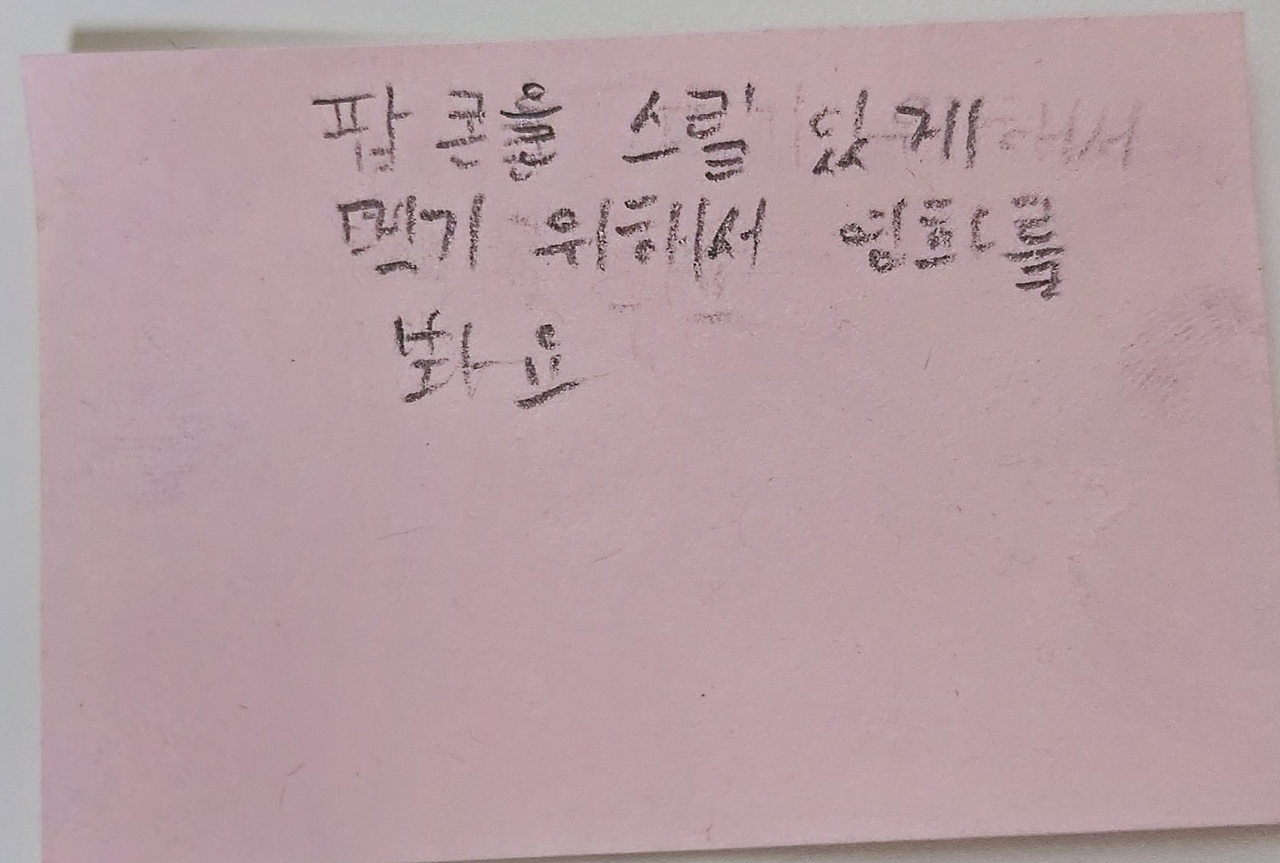 팝콘을 스릴 있게
먹기 위해서 영화를
봐요